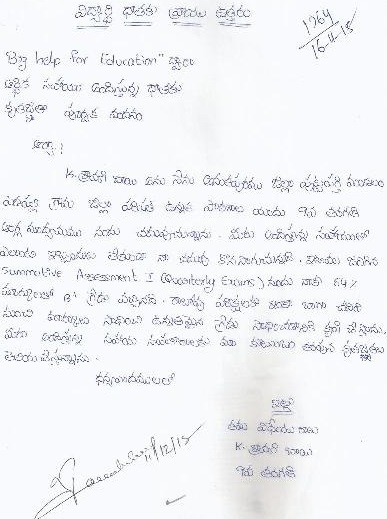 విద్యార్థి దాతకు వ్రాయు ఉత్తరం
1964
16-4-15
"Big help for Education" ద్వారా
ఆర్థిక సహాయం అందిస్తున్న దాతకు
కృతజ్ఞతా పూర్వక వందనం
ఆర్యా!
K. శ్రావణి బాయి అను నేను అనంతపురము జిల్లా పుట్టపర్తి మండలం
గ్రామ జిల్లా పరిషత్ ఉన్నత పాఠశాల యందు 9వ తరగతి
ఆంగ్ల మాధ్యమము నందు చదువుచున్నాను. మీరు అందిస్తున్న సహాయంతో
ఎలాంటి ఇబ్బందులు లేకుండా నా చదువు కొనసాగుచున్నది. ఇటీవల జరిగిన
Summative Assessment I (Quarterly Exams) నందు నాకు 64%
మార్కులతో B1 గ్రేడు వచ్చినది. రాబోవు పరీక్షలకు ఇంకా బాగా చదివి
మంచి మార్కులు సాధించి ఉన్నతమైన గ్రేడు సాధించడానికి కృషి చేస్తాను.
మీరు అందిస్తున్న సహాయ సహకారాలకు మా కుటుంబం తరపున కృతజ్ఞతలు
తెలియచేస్తున్నాను.
ధన్యవాదములతో
ఇట్లు
తమ విధేయురాలు
K. శ్రావణి బాయి
9వ తరగతి
11/12/15